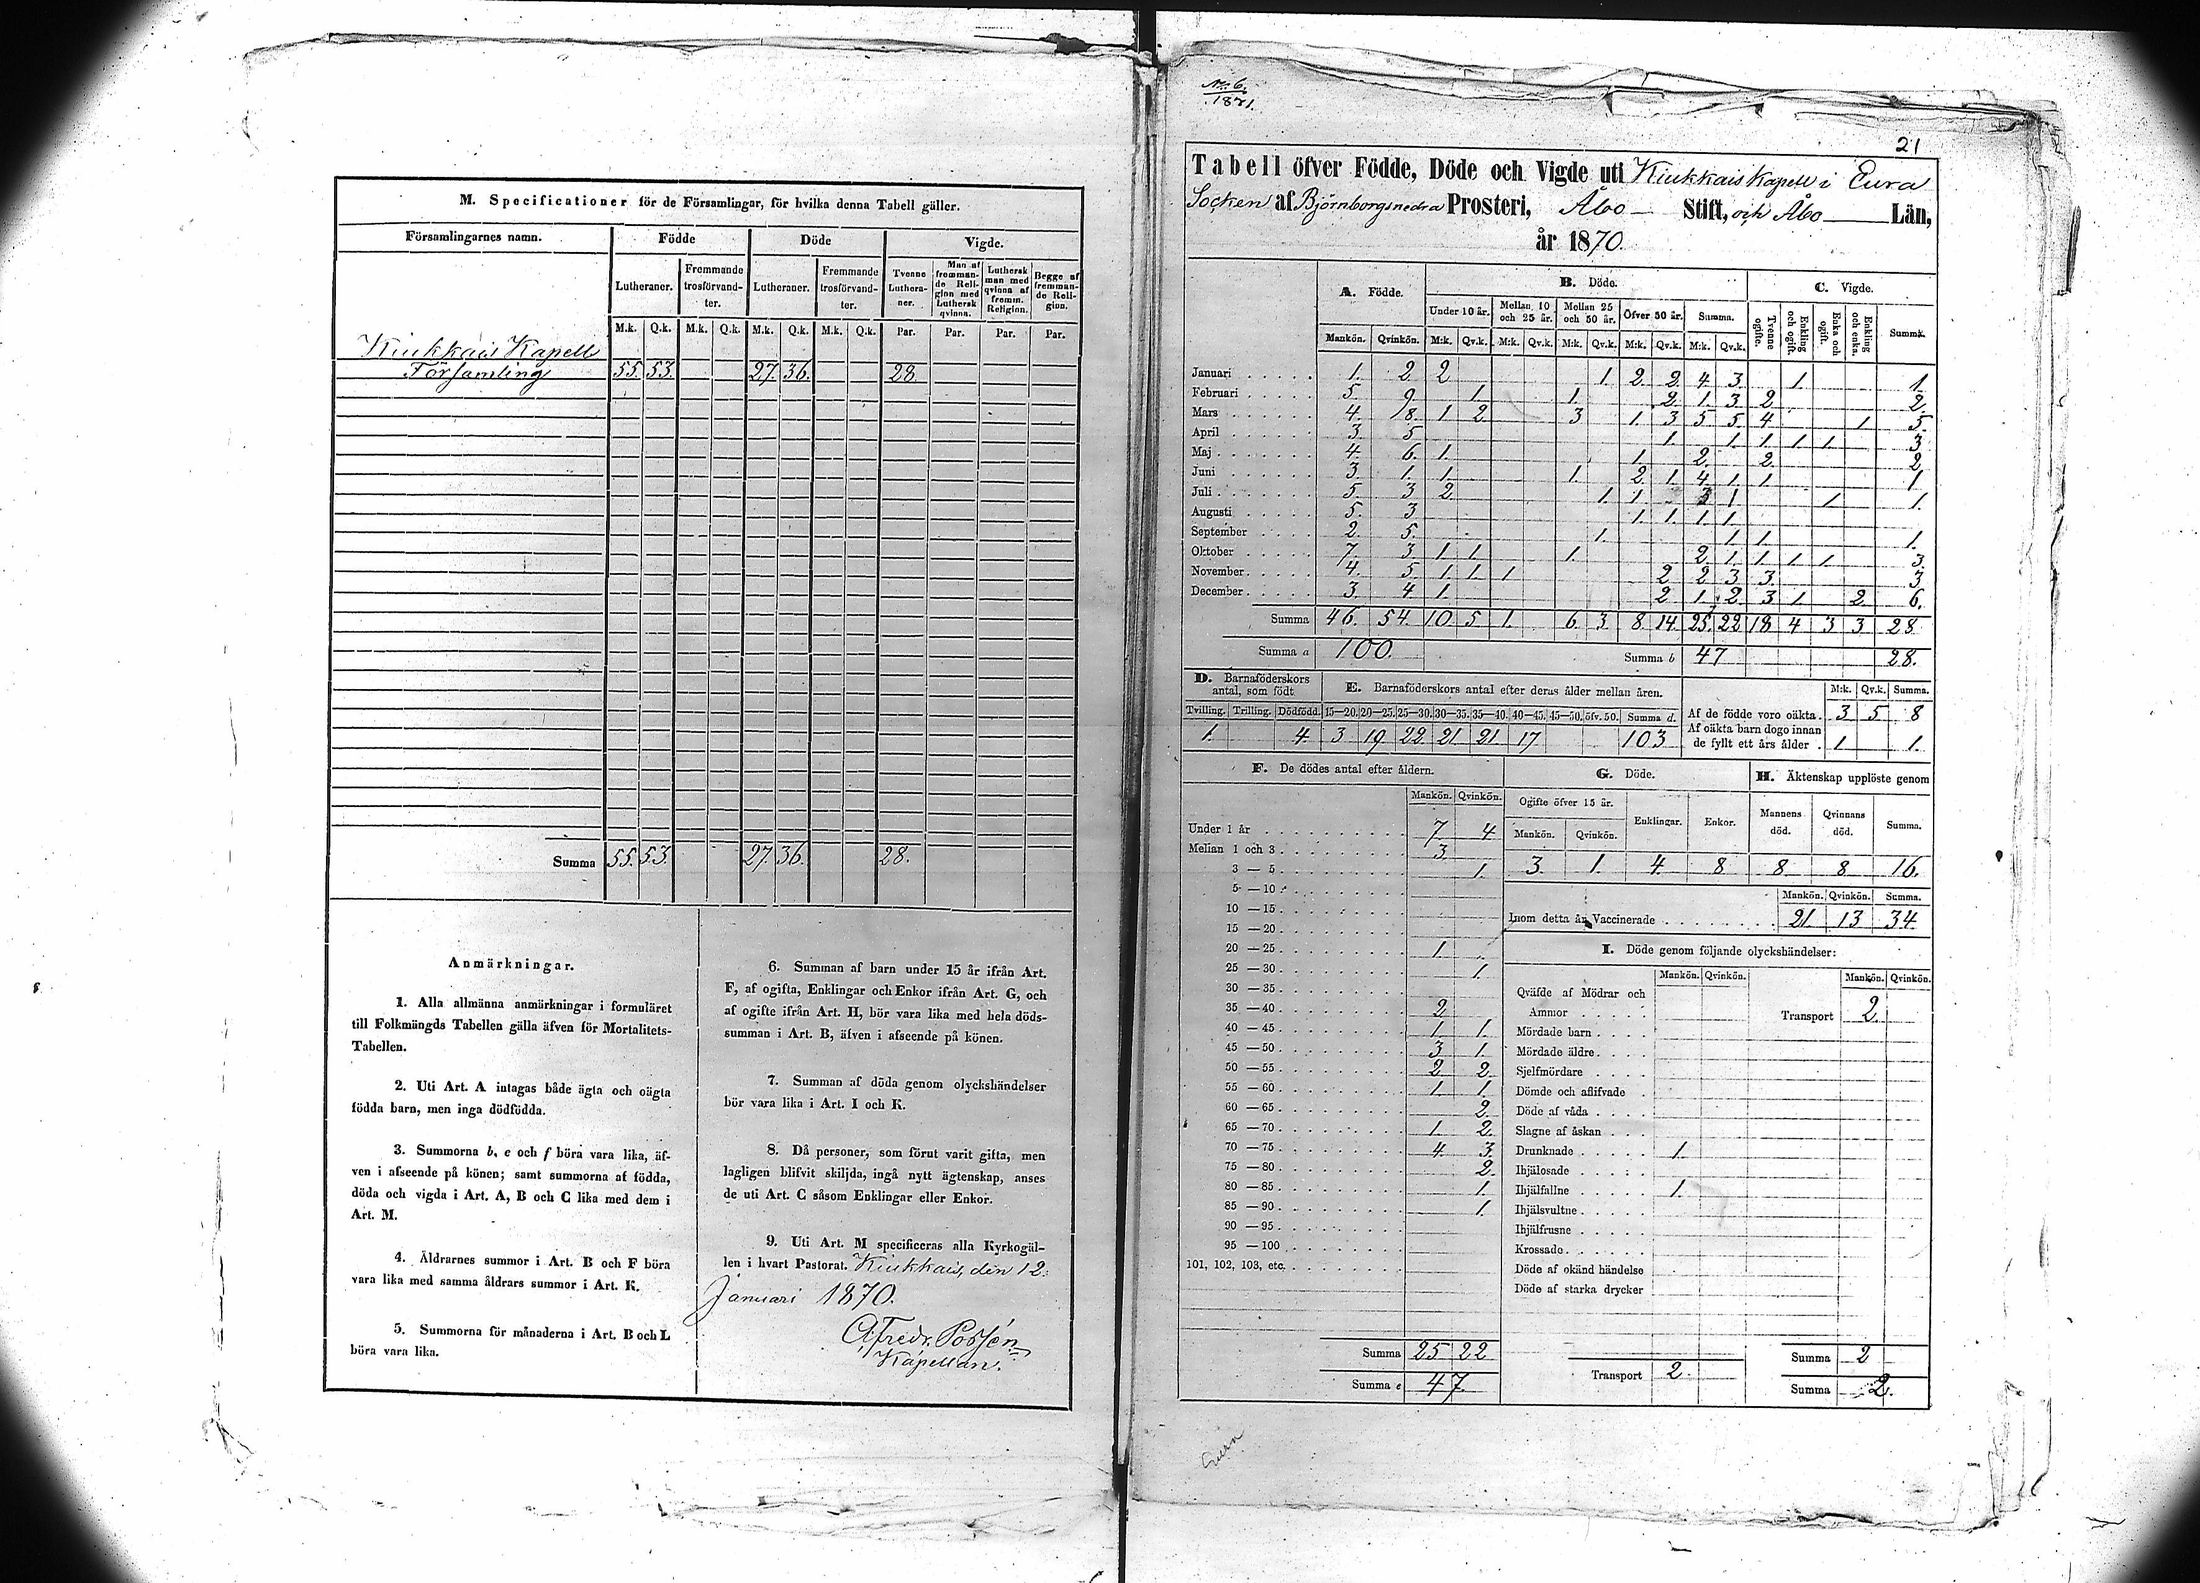 M. Specificationer för de Församlingar, för hvilka denna Tabell gäller.
Församlingarnes namn. Födde Döde Vigde.
Lutheraner. Fremmande trosförvandter. Lutheraner. Fremmande trosförvandter. Tvenne Lutheraner. Man af fremmande Religion med Luthersk qvinna. Luthersk man med qvinna af fremm. Religion. Begge af fremmande Religion.
M.k. Q.k. M.k. Q.k. M.k. Q.k. M.k. Q.k. Par. Par. Par. Par.
Kiukkais Kapell
Församling 55. 53. 27. 36. 28.
Summa 55. 53. 27. 36. 28.
Anmärkningar.
1. Alla allmänna anmärkningar i formuläret
till Folkmängds Tabellen gälla äfven för Mortalitets-
Tabellen.
2. Uti Art. A intagas både ägta och oägta
födda barn, men inga dödfödda.
3. Summorna b, e och f böra vara lika, äf-
ven i afseende på könen; samt summorna af födda,
döda och vigda i Art. A, B och C lika med dem i
Art. M.
4. Åldrarnes summor i Art. B och F böra
vara lika med samma åldrars summor i Art. K.
5. Summorna för månaderna i Art. B och L
böra vara lika.
6. Summan af barn under 15 år ifrån Art.
F, af ogifta, Enklingar och Enkor ifrån Art. G, och
af ogifte ifrån Art. H, bör vara lika med hela döds-
summan i Art. B, äfven i afseende på könen.
7. Summan af döda genom olyckshändelser
bör vara lika i Art. I och K.
8. Då personer, som förut varit gifta, men
lagligen blifvit skiljda, ingå nytt ägtenskap, anses
de uti Art. C såsom Enklingar eller Enkor.
9. Uti Art. M specificeras alla Kyrkogäl-
len i hvart Pastorat. Kiukkais, den 12.
Januari 1870.
Kapellan.
No 6.
1871.
21
Tabell öfver Födde, Döde och Vigde uti Kiukkais Kapell i Eura
Socken af Björnborgs nedra Prosteri, Åbo Stift, och Åbo Län,
år 1870.
A. Födde. B. Döde. C. Vigde.
Under 10 år. Mellan 10 och 25 år. Mellan 25 och 50 år. Öfver 50 år. Summa. Tvenne ogifte. Enkling och ogift. Enka och ogift. Enkling och enka. Summa.
Mankön. Qvinkön. M:k. Qv.k. M:k. Qv.k. M:k. Qv.k. M:k. Qv.k. M:k. Qv.k.
Januari 1. 2. 2 1. 2. 2. 4. 3. 1. 1.
Februari 5. 9. 1. 1. 2. 1. 3. 2. 2.
Mars 4. 18. 1 2. 3 1. 3 5 5. 4 1. 5.
April 3. 5 1. 1. 1. 1. 1. 3.
Maj 4. 6. 1. 1. 2. 2. 2.
Juni 3. 1. 1. 1. 2. 1. 4. 1. 1 1
Juli 5. 3 2 1. 1. 3 1. 1. 1.
Augusti 5. 3 1. 1. 1. 1.
September 2. 5. 1. 1. 1. 1.
Oktober 7. 3. 1. 1. 1. 2. 1. 1. 1. 1. 3.
November 4. 5. 1. 1. 1 2 2 3 3. 3.
December 3. 4 1. 2 1. 2. 3 1. 2. 6.
Summa 46. 54. 10 5 1. 6. 3. 8. 14. 25. 22. 18. 4 3 3. 28
Summa a 100. Summa b 47 28.
D. Barnaföderskors antal, som födt
Tvilling. Trilling. Dödfödd.
1. 4.
E. Barnaföderskors antal efter deras ålder mellan åren.
15—20. 20—25. 25—30. 30—35. 35—40. 40—45. 45—50. öfv. 50. Summa d.
3 19 22. 21 21. 17 103
M:k. Qv.k. Summa.
Af de födde voro oäkta. 3 5 8
Af oäkta barn dogo innan
de fyllt ett års ålder. 1 1.
F. De dödes antal efter åldern.
Mankön. Qvinkön.
Under 1 år 7. 4
Mellan 1 och 3 3.
3 — 5 1.
5 — 10
10 — 15
15 — 20
20 — 25 1.
25 — 30 1
30 — 35
35 — 40 2
40 — 45 1. 1.
45 — 50 3 1.
50 — 55 2 2.
55 — 60 1. 1.
60 — 65 2.
65 — 70 1. 2.
70 — 75 4. 3.
75 — 80 2.
80 — 85 1.
85 — 90 1.
90 — 95
95 — 100
101, 102, 103, etc.
Summa 25 22
Summa e 47.
G. Döde.
Ogifte öfver 15 år. Enklingar. Enkor.
Mankön. Qvinkön.
3. 1. 4. 8
H. Äktenskap upplöste genom
Mannens död. Qvinnans död. Summa.
8 8 16.
Mankön. Qvinkön. Summa.
Inom detta år Vaccinerade 21. 13 34
I. Döde genom följande olyckshändelser:
Mankön. Qvinkön. Mankön. Qvinkön.
Qväfde af Mödrar och
Ammor
Transport 2.
Mördade barn
Mördade äldre
Sjelfmördare
Dömde och aflifvade
Döde af våda
Slagne af åskan
Drunknade 1.
Ihjälosade
Ihjälfallne 1.
Ihjälsvultne
Ihjälfrusne
Krossade
Döde af okänd händelse
Döde af starka drycker
Transport 2.
Summa 2
Summa 2.
Eura